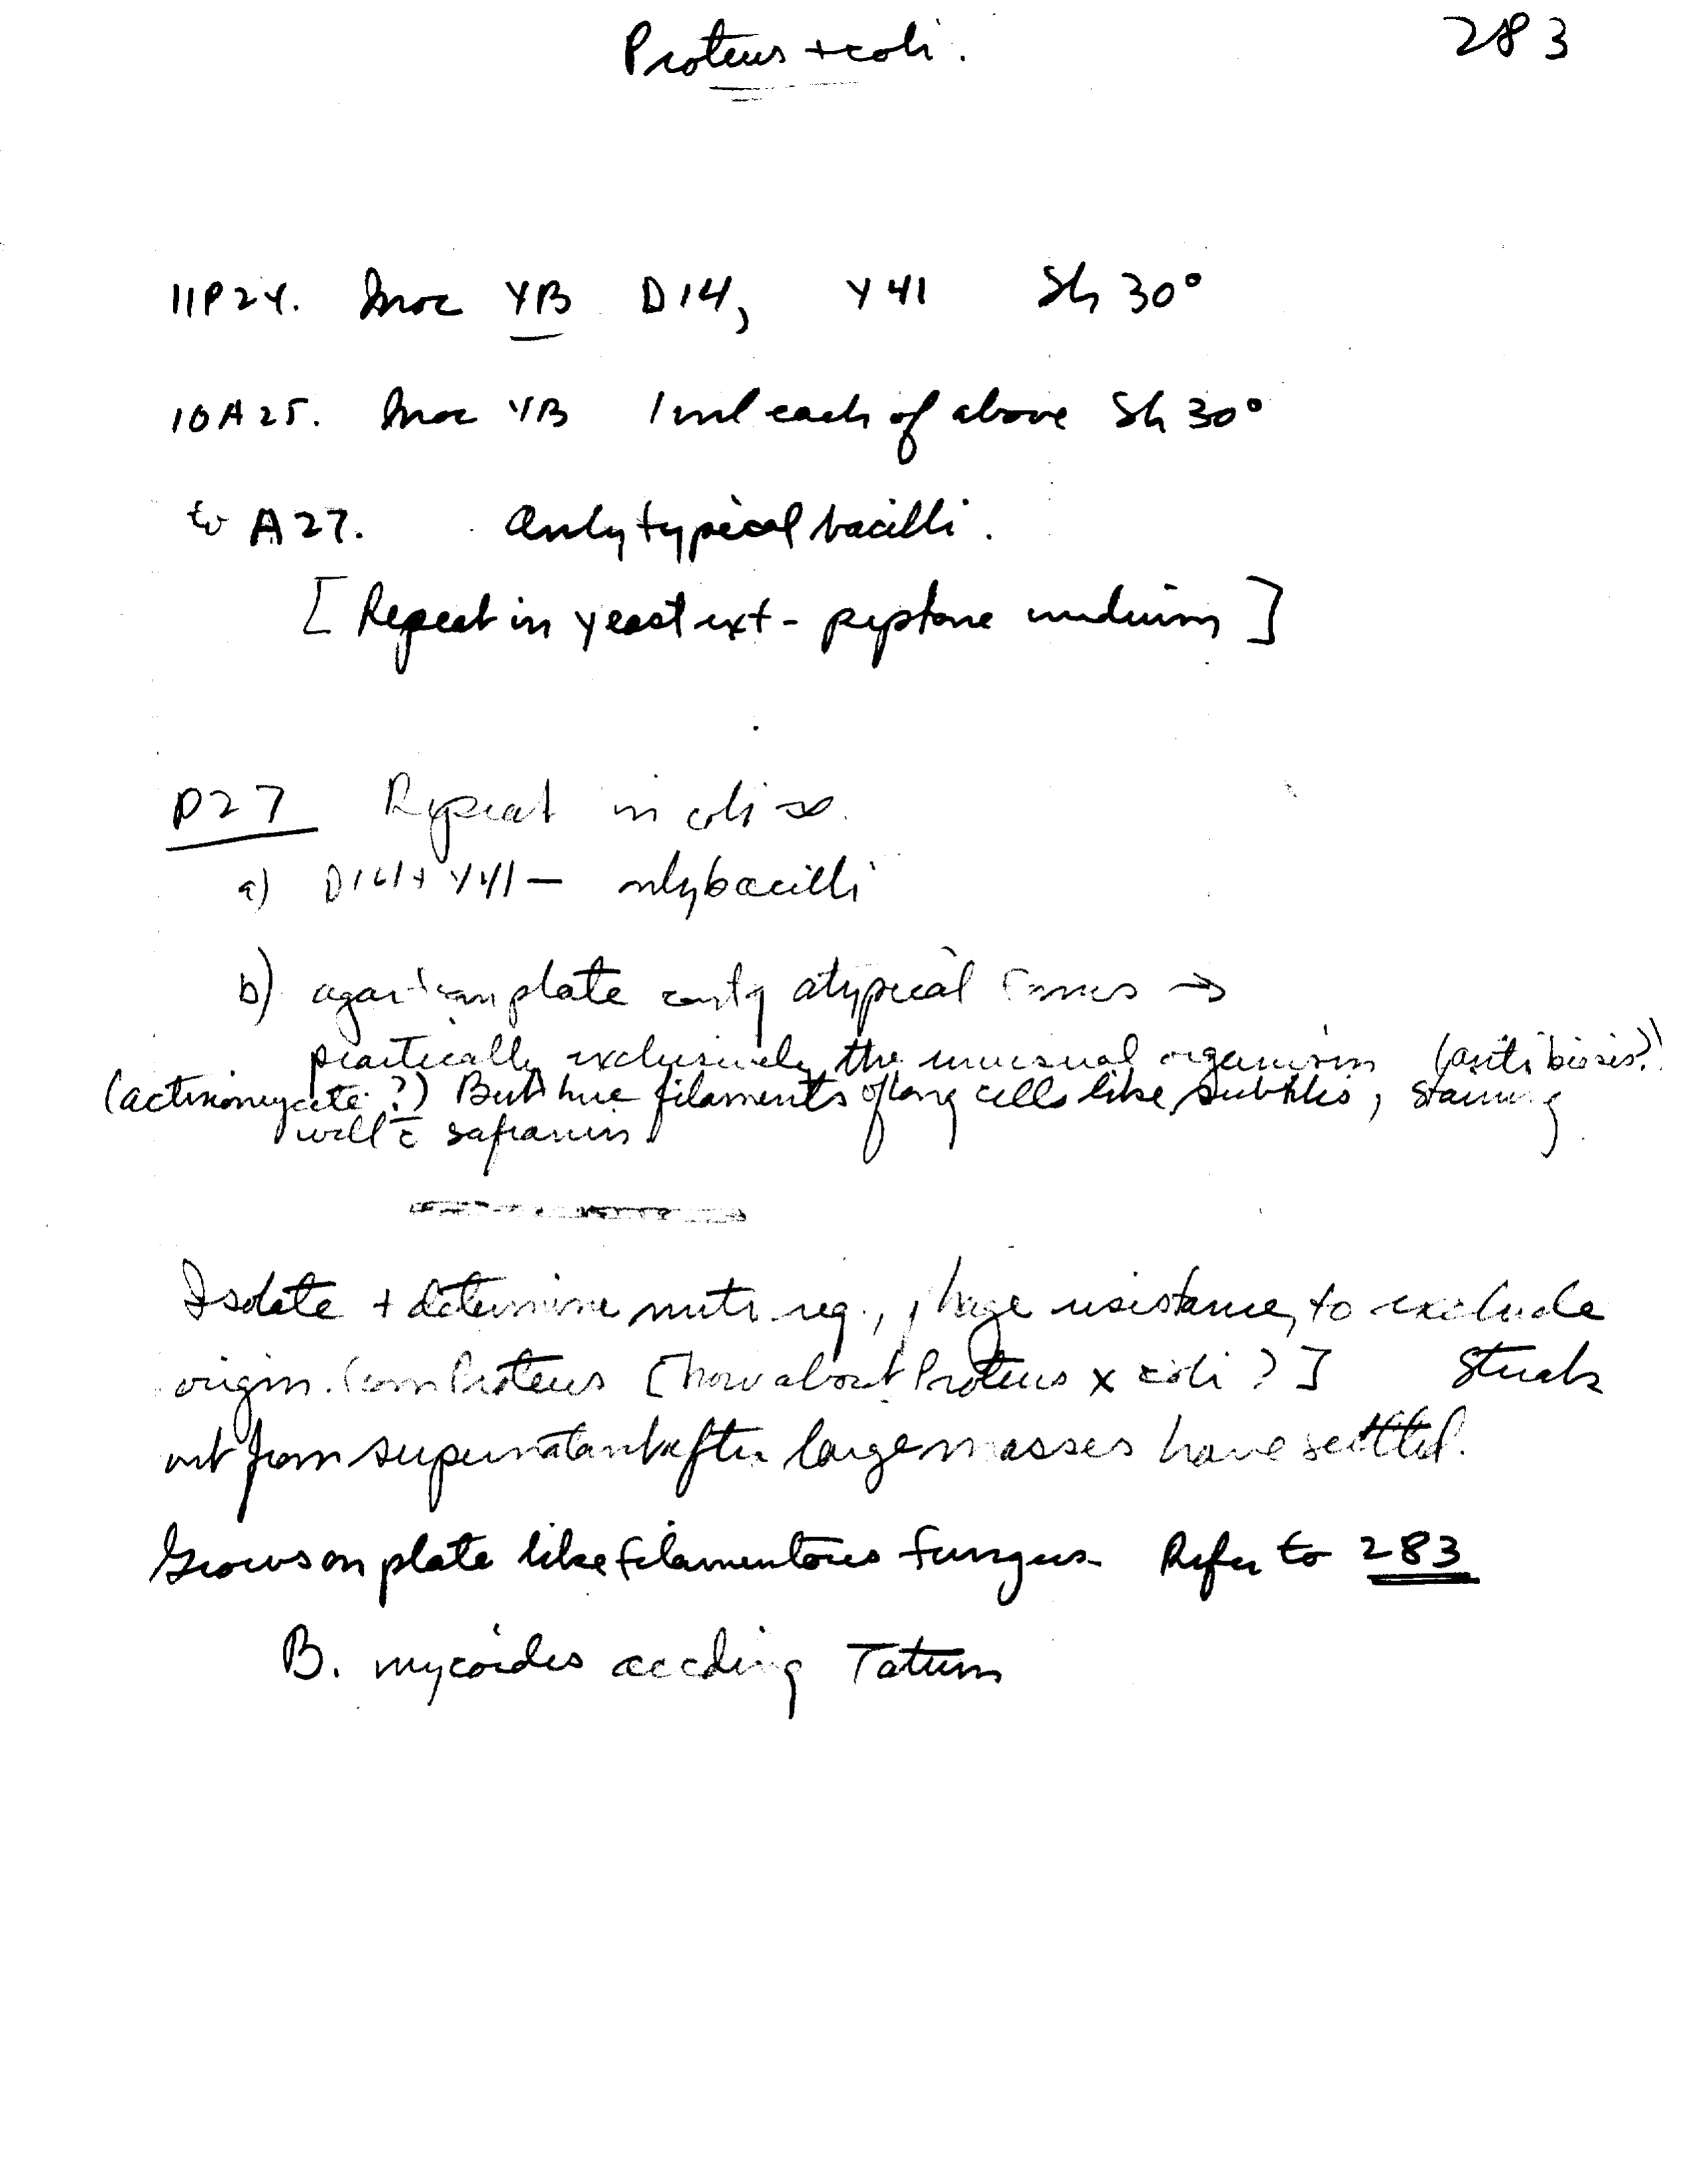 283
Proteus + coli.
11P24. Inoc YB D14, Y41 Sh 30°
10A25. Inoc YB 1 ml each of above Sh 30°
to A27. Only typical bacilli.
[Repeat in yeast ext - peptone medium]
P27 Repeat in coli
a) D14 + Y41 — only bacilli
b) agar plate atypical forms →
practically exclusively the unusual organism (antibiosis?)
(actinomycete?) But true filaments of long cells like subtilis, staining
well c̄ safranin.
Isolate + determine nutr. req., phage resistance, to exclude
origin from Proteus [how about Proteus x coli?] Streak
out from supernatant after large masses have settled.
Grows on plate like filamentous fungus. Refer to 283
B. mycoides accding Tatum